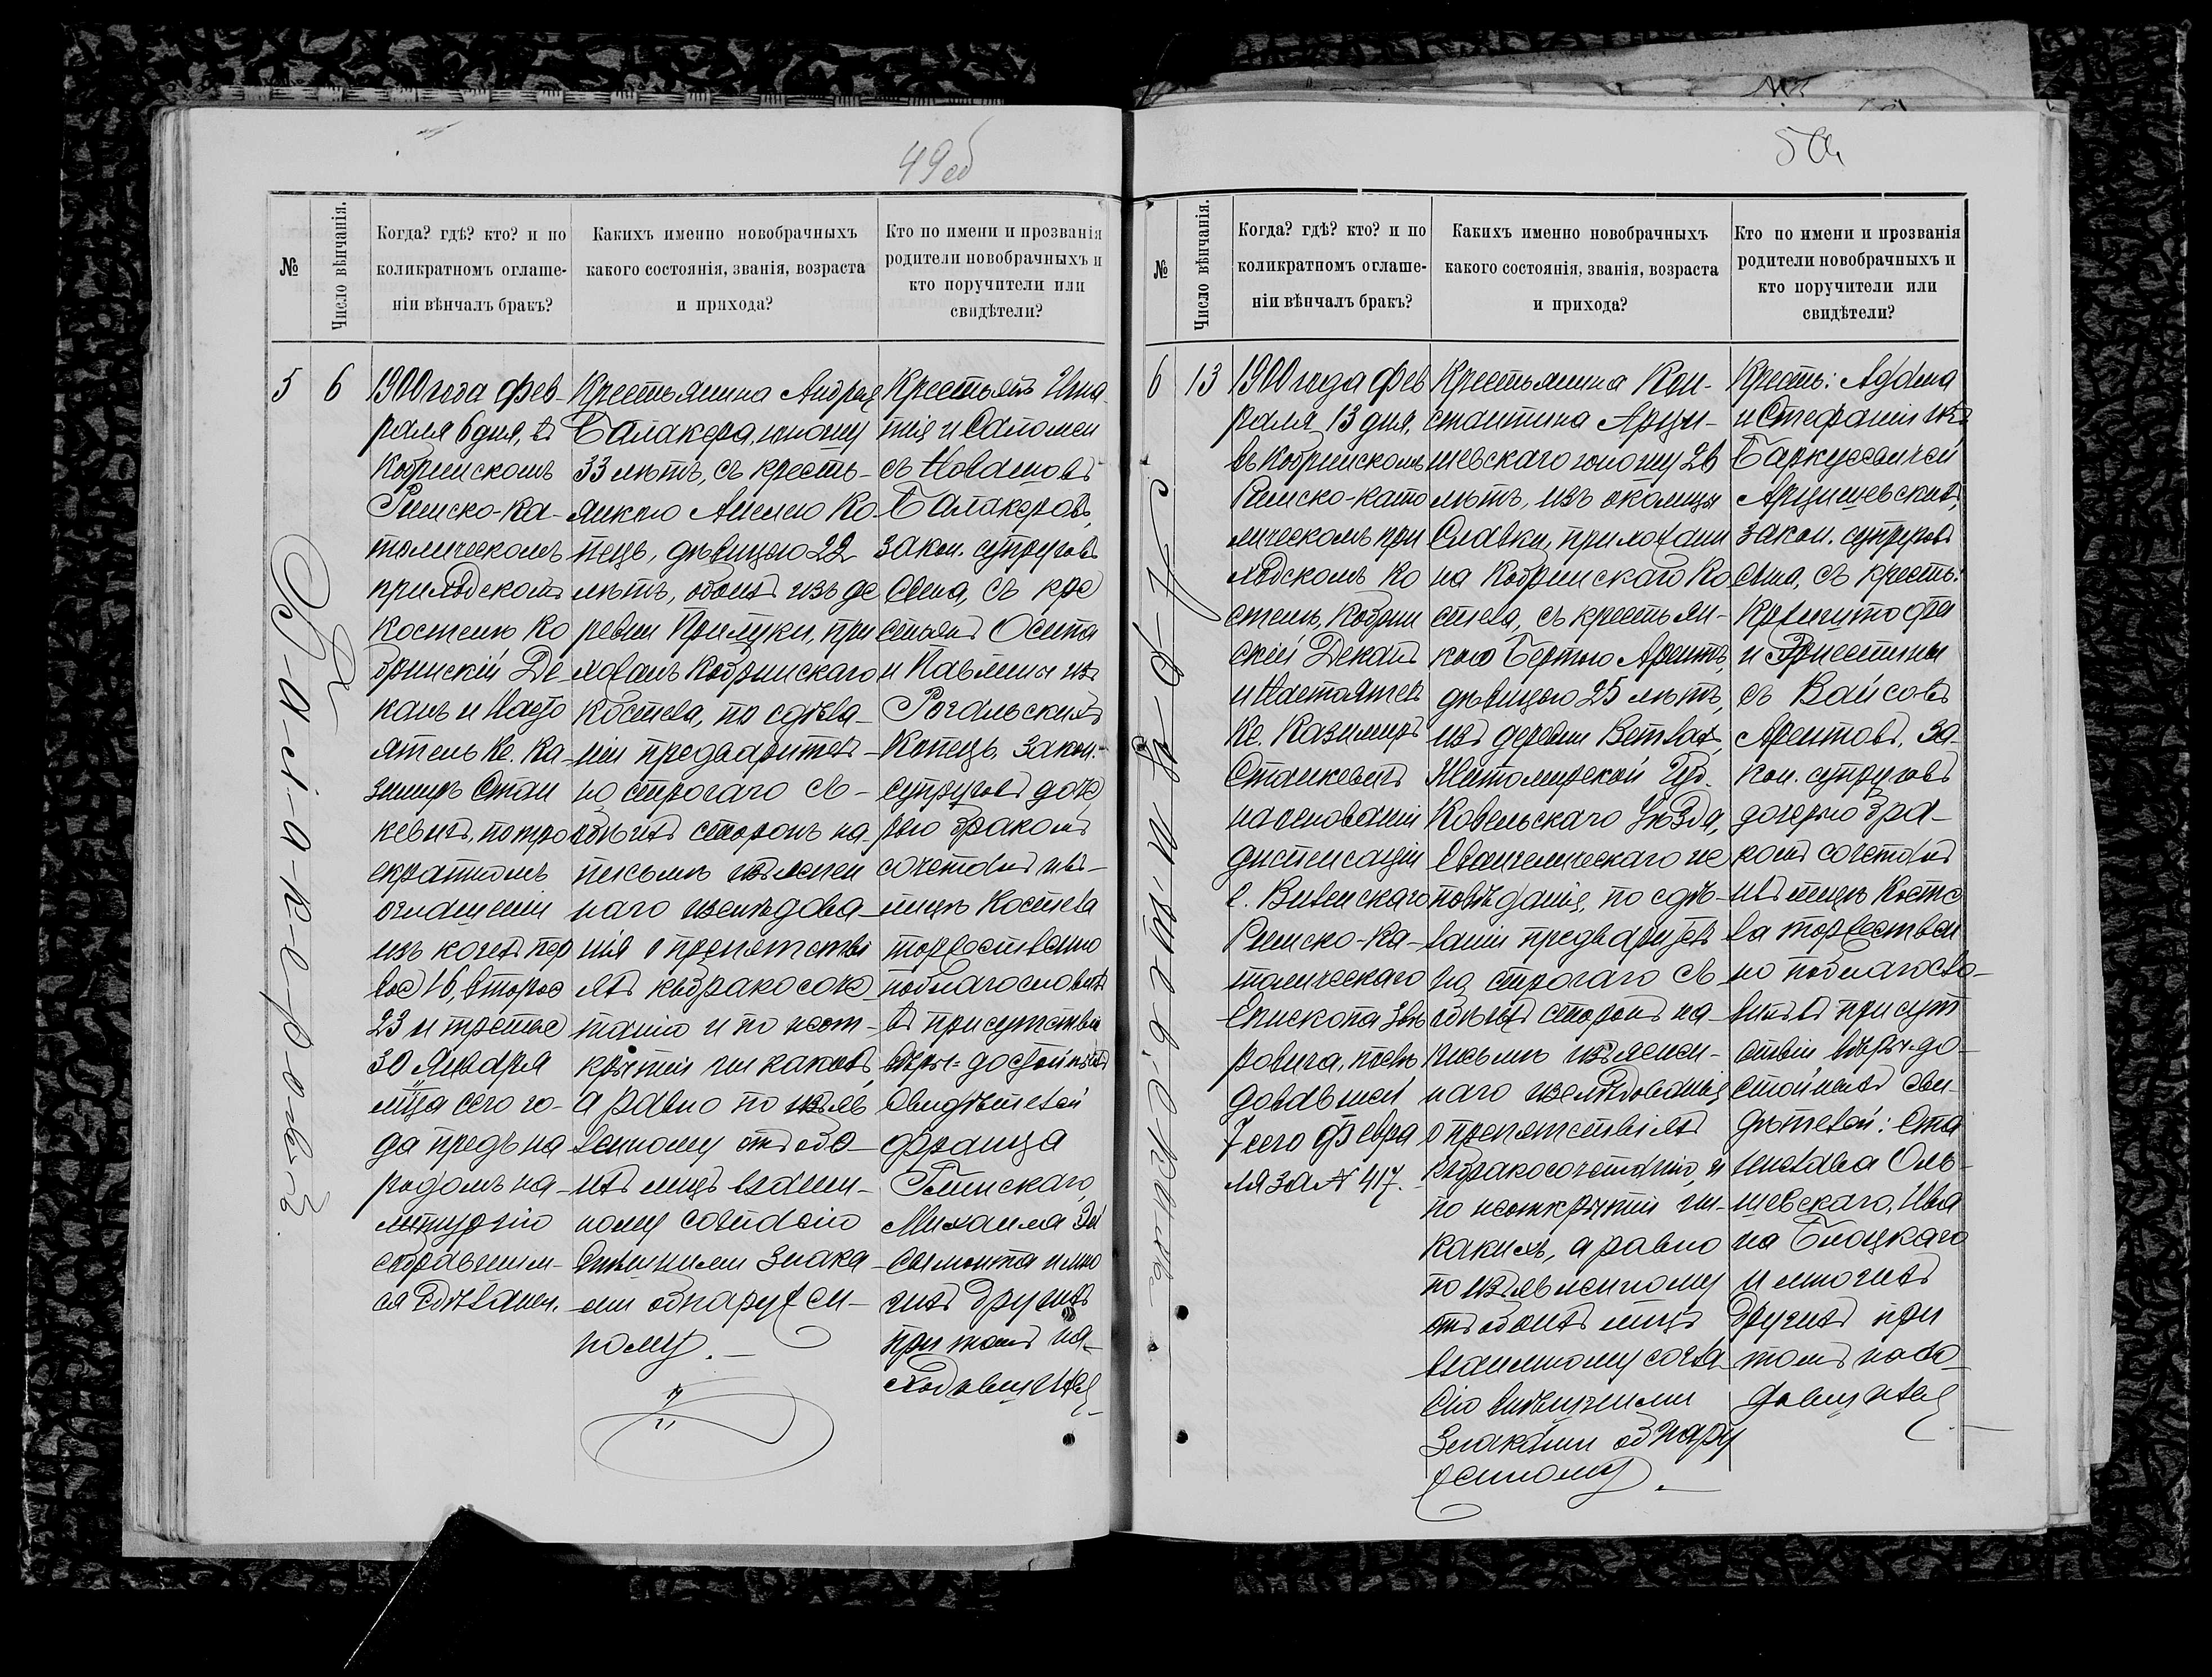 49об
№
Число вѣнчанія.
Когда? гдѣ? кто? и по
коликратномъ оглаше-
ніи вѣнчалъ бракъ?
Какихъ именно новобрачныхъ
какого состоянія, званія, возраста
и прихода?
Кто по имени и прозванія
родители новобрачныхъ и
кто поручители или
свидѣтели?
5
6
1900 года Фев-
раля 6 дня, въ
Кобринскомъ
Римско-Ка-
толическомъ
приходскомъ
костелѣ Ко
бринскій Де-
канъ и Насто
ятель Кс. Ка-
зимиръ Стан
кевичъ, по тро
екратномъ
оглашеніи
изъ коихъ пер
вое 16, второе
23 и третье
30 Января
мца сего го-
да предъ на
родомъ на-
литургію
собравшим-
ся сдѣланы.
Крестьянина Андрея
Балакера, юношу
33 лѣтъ, съ кресть-
янкою Ко-
пець, дѣвицею 22
лѣтъ, обоихъ изъ де
ревни Прилуки, при
хожанъ Кобринскаго
Костела, по сдѣла-
ніи предварител-
но строгаго съ-
обѣихъ сторонъ на
письмѣ изъяснен
наго изслѣдова-
нія о препятстві
яхъ къ бракосоче-
танію и по неот-
крытіи ни какихъ,
а равно по изъяв
ленному отъ обо-
ихъ лицъ взаим-
ному согласію
внѣшними знака-
ми обнаружен-
ному.
Крестьянъ Игна
тія и Саломеи
съ
Балакеровъ,
закон. супруговъ
сына, съ кре
стьянъ Осипа
и Павлины изъ
Рогальскихъ
Копець закон.
супруговъ доче
рью бракомъ
сочеталъ и въ-
лицѣ Костела
торжественно
поблагословилъ
въ присутствіи
вѣры-достойныхъ
свидѣтелей
Франца
Михаила
и мно
гихъ другихъ
при томъ на-
ходившихся
50
№
Число вѣнчанія.
Когда? гдѣ? кто? и по
коликратномъ оглаше-
ніи вѣнчалъ бракъ?
Какихъ именно новобрачныхъ
какого состоянія, званія, возраста
и прихода?
Кто по имени и прозванія
родители новобрачныхъ и
кто поручители или
свидѣтели?
6
13
1900 года Фев
раля 13 дня,
въ Кобринскомъ
Римско-като
лическомъ при
ходскомъ ко
стелѣ, Кобрин
скій Деканъ
и Настоятель
Кс. Казимиръ
Станкевичъ
на основаніи
диспенсаціи
Е. Виленскаго
Римско-Ка-
толическаго
Епископа Звѣ
ровича, послѣ
довавшей
7 сего Февра
ля за № 417.
Крестьянина Кон-
стантина Арци-
шевскаго юношу 26
лѣтъ, изъ околицы
Славки, прихожани
на Кобринскаго Ко
стела, съ крестьян-
кою Бертою Арентъ,
дѣвицею 25 лѣтъ,
изъ деревни
Житомирской Губ.
Ковельскаго Уѣзда,
Евангелическаго ис
повѣданія, по сдѣ-
ланіи предварител
но строгаго съ
обѣихъ сторонъ на
письмѣ изъяснен-
наго изслѣдованія
о препятствіяхъ
къ бракосочетанію, и
по неоткрытіи ни-
какихъ, а равно
по изъявленному
отъ обоихъ лицъ
взаимному согла-
сію внѣшними
знаками обнару
женному.
Кресть: Адама
и Стефаніи изъ
Баркусевичей
Арцишевскихъ,
закон. супруговъ
сына, съ кресть:
Крыштофа
и
съ Вайсовъ
Арентовъ, за-
кон. супруговъ
дочерью бра-
комъ сочеталъ
и въ лицѣ Косте
ла торжествен
но поблагосло-
вилъ въ присут
ствіи вѣры-до-
стойныхъ сви-
дѣтелей: Ста
нислава Оль-
шевскаго, Ива
на Блоцкаго
и многихъ
другихъ при
томъ нахо-
дившихся